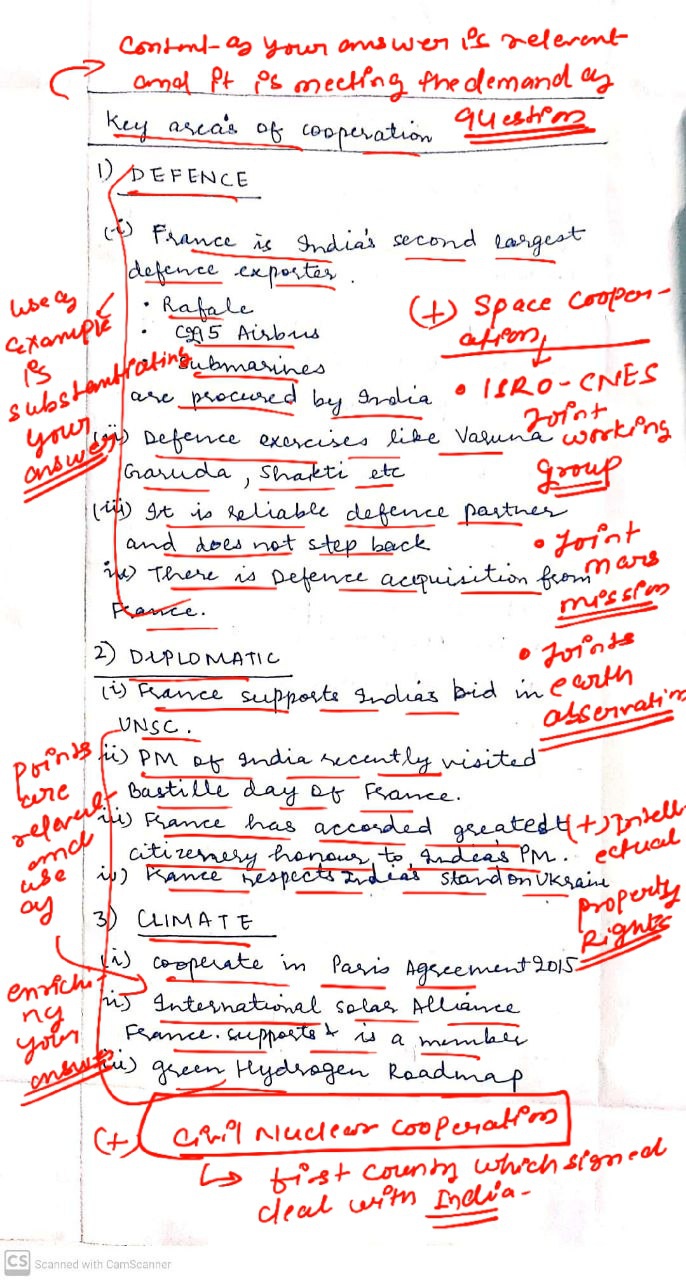 Content of your answer is relevant
and it is meeting the demand of
question
Key area's of cooperation
1) DEFENCE
(i) France is India's second largest
defence exporter.
• Rafale
• C295 Airbus
• Submarines
are procured by India
(ii) Defence exercises like Varuna
Garuda, Shakti etc
(iii) It is reliable defence partner
and does not step back
iv) There is Defence acquisition from
France.
use of
example
is
substantiating
your
answer
(+) Space cooper-
ation
• ISRO-CNES
Joint
working
group
• Joint
mars
mission
• Joints
earth
observation
2) DIPLOMATIC
(i) France supports India's bid in
UNSC.
ii) PM of India recently visited
Bastille day of France.
iii) France has accorded greatest
citizenery honour to India's PM.
iv) France respects India's stand on Ukraine
(+) Intell-
ectual
property
Rights
3) CLIMATE
(i) cooperate in Paris Agreement 2015
ii) International solar Alliance
France supports & is a member
iii) green Hydrogen Roadmap
Points
are
relevant
and
use
of
enrichi-
ng
your
answer
(+) Civil Nuclear cooperation
↳ first county which signed
deal with India-
CS Scanned with CamScanner